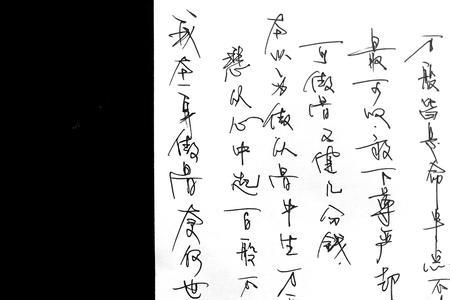 万般皆是命半点不
最可以放下尊严却
可傲骨又值几分钱
本以为傲从骨中生万
从心中起百般不
我本一身傲骨奈何世